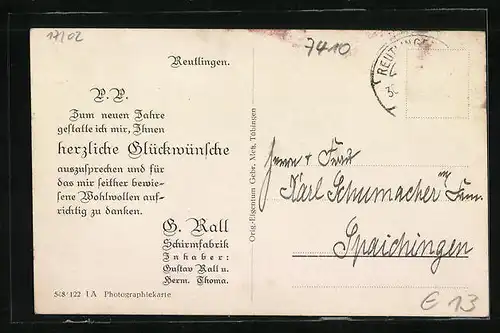 17/02
7410
Reutlingen.
P. P.
Zum neuen Jahre
gestatte ich mir, Ihnen
herzliche Glückwünsche
auszusprechen und für
das mir seither bewie-
sene Wohlwollen auf-
richtig zu danken.
G. Rall
Schirmfabrik
Inhaber:
Gustav Rall u.
Herm. Thoma.
548/122 IA Photographiekarte
Orig.-Eigentum Gebr. Metz, Tübingen
REUTLINGEN
Herrn & Frau
Karl Schumacher
Spaichingen
€ 13